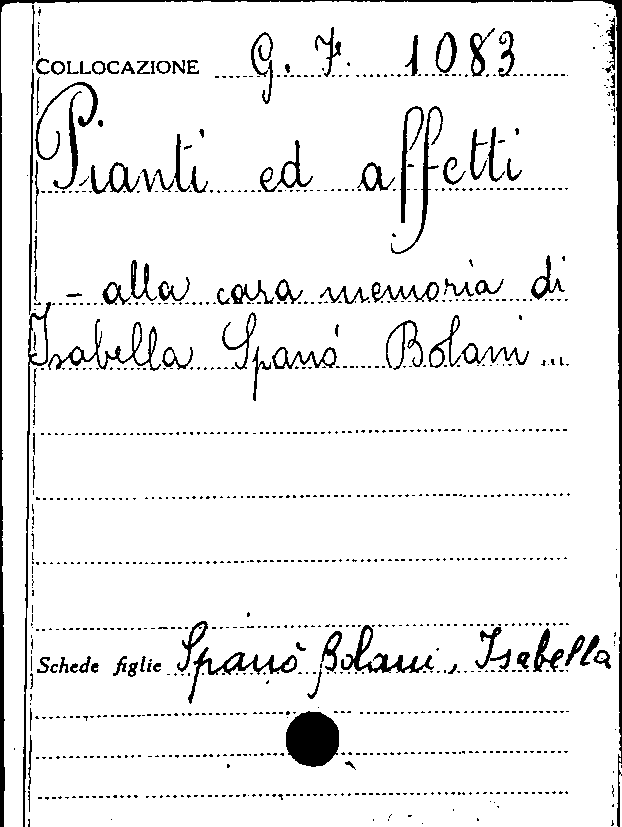 COLLOCAZIONE G. F. 1083
Pianti ed affetti
- alla cara memoria di
Isabella Spanó Bolani ...
Schede figlie Spanò Bolani, Isabella